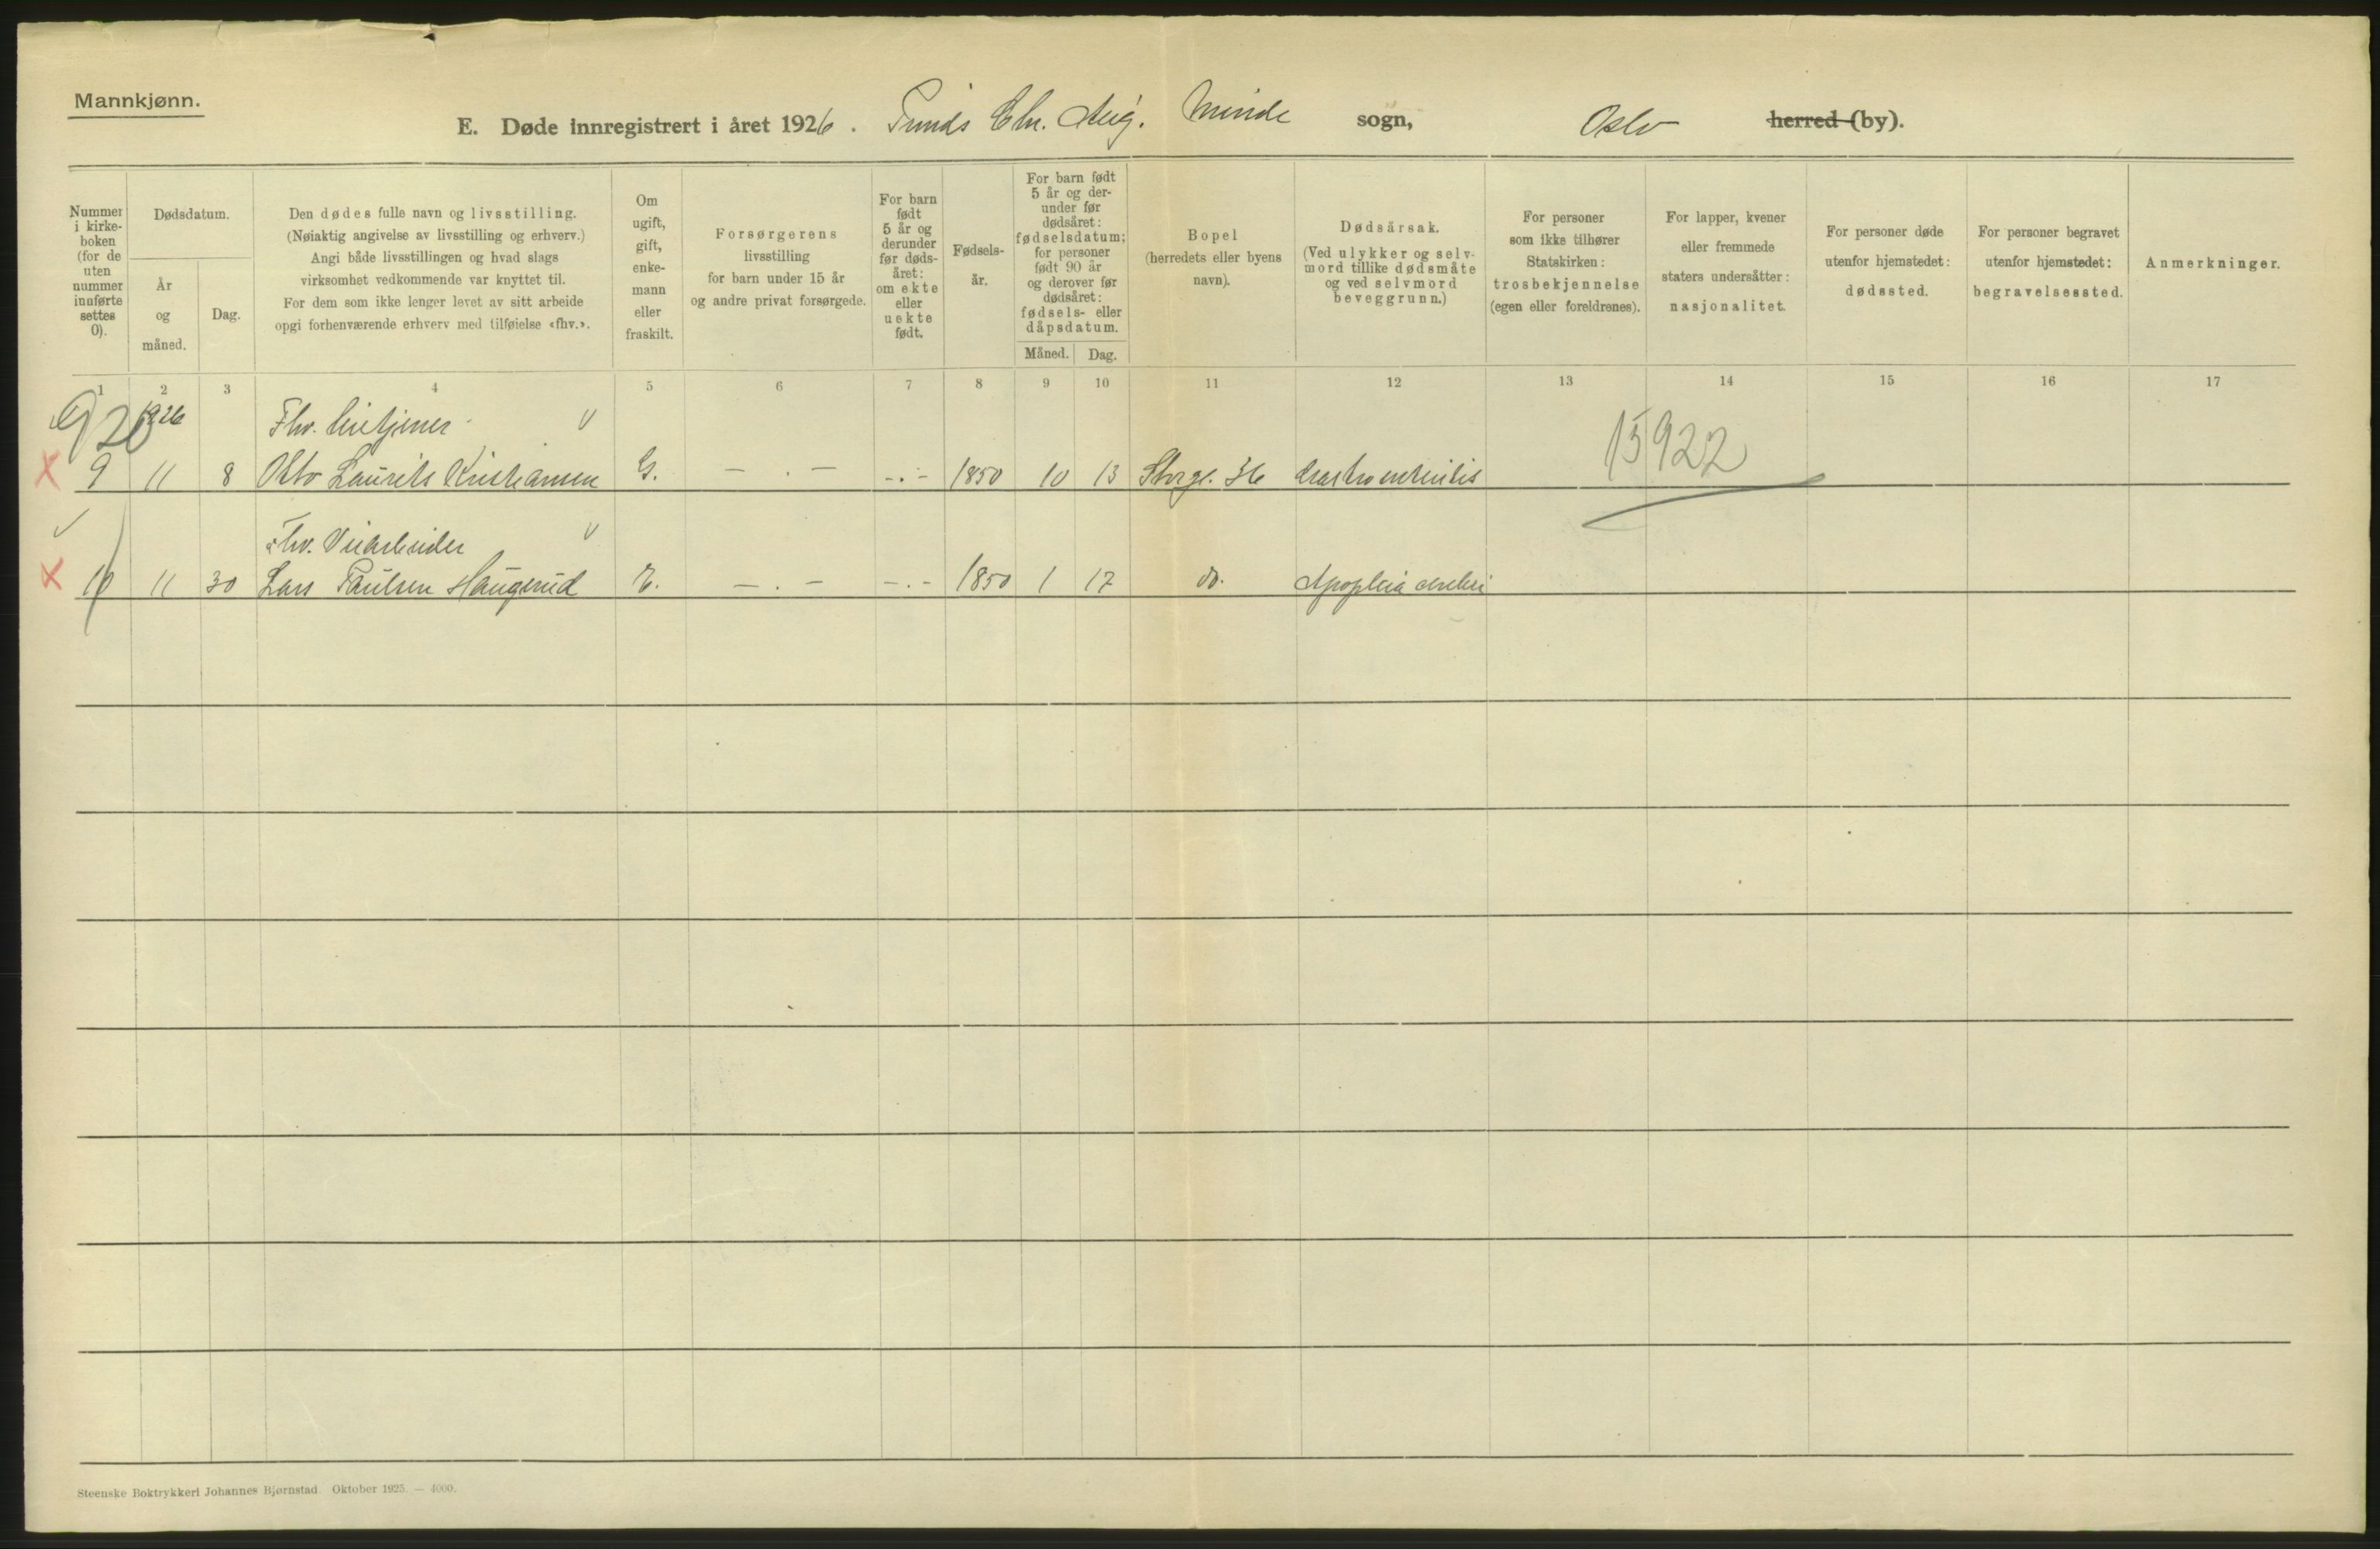 Mannkjønn.
E. Døde innregistrert i året 1926. Prinds Chr. Aug. Minde sogn, Oslo herred (by).
Nummer i kirke-boken (for de uten nummer innførte settes 0).
Dødsdatum.
År og måned.
Dag.
Den dødes fulle navn og livsstilling.
(Nøiaktig angivelse av livsstilling og erhverv.)
Angi både livsstillingen og hvad slags
virksomhet vedkommende var knyttet til.
For dem som ikke lenger levet av sitt arbeide
opgi forhenværende erhverv med tilføielse «fhv.».
Om ugift, gift, enke-mann eller fraskilt.
Forsørgerens
livsstilling
for barn under 15 år
og andre privat forsørgede.
For barn født 5 år og derunder før døds-året: om ekte eller uekte født.
Fødsels-år.
For barn født 5 år og der-under før dødsåret: fødselsdatum; for personer født 90 år og derover før dødsåret: fødsels- eller dåpsdatum.
Måned. Dag.
Bopel
(herredets eller byens
navn).
Dødsårsak.
(Ved ulykker og selv-
mord tillike dødsmåte
og ved selvmord
beveggrunn.)
For personer
som ikke tilhører
Statskirken:
trosbekjennelse
(egen eller foreldrenes).
For lapper, kvener
eller fremmede
staters undersåtter:
nasjonalitet.
For personer døde
utenfor hjemstedet:
dødssted.
For personer begravet
utenfor hjemstedet:
begravelsessted.
Anmerkninger.
1 2 3 4 5 6 7 8 9 10 11 12 13 14 15 16 17
920 1926 Fhv. 15922
9 11 8 Otto Laurits Kristiansen G. — . — -.- 1850 10 13 Storgt. 36
Fhv.
10 11 30 Lars Paulsen Haugerud E. — . — -.- 1850 1 17 do. Apoplexia cerebri
Steenske Boktrykkeri Johannes Bjørnstad. Oktober 1925. — 4000.